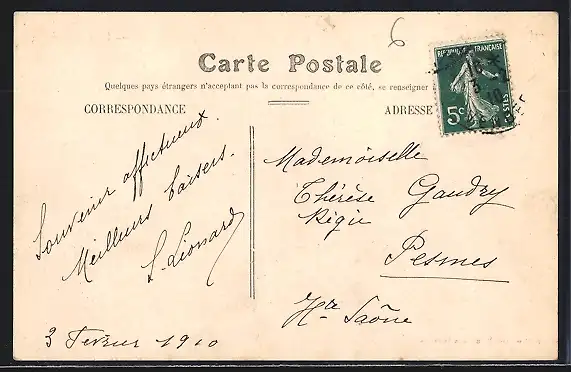 Carte Postale
Quelques pays étrangers n'acceptent pas la correspondance de ce côté, se renseigner
CORRESPONDANCE
ADRESSE
REPUBLIQUE FRANÇAISE
5c
POSTES
6
Souvenir affectueux.
Meilleurs baisers.
S. Léonard
3 Février 1910
Mademoiselle
Thérèse Gaudry
Régie
Pesmes
Hte Saône